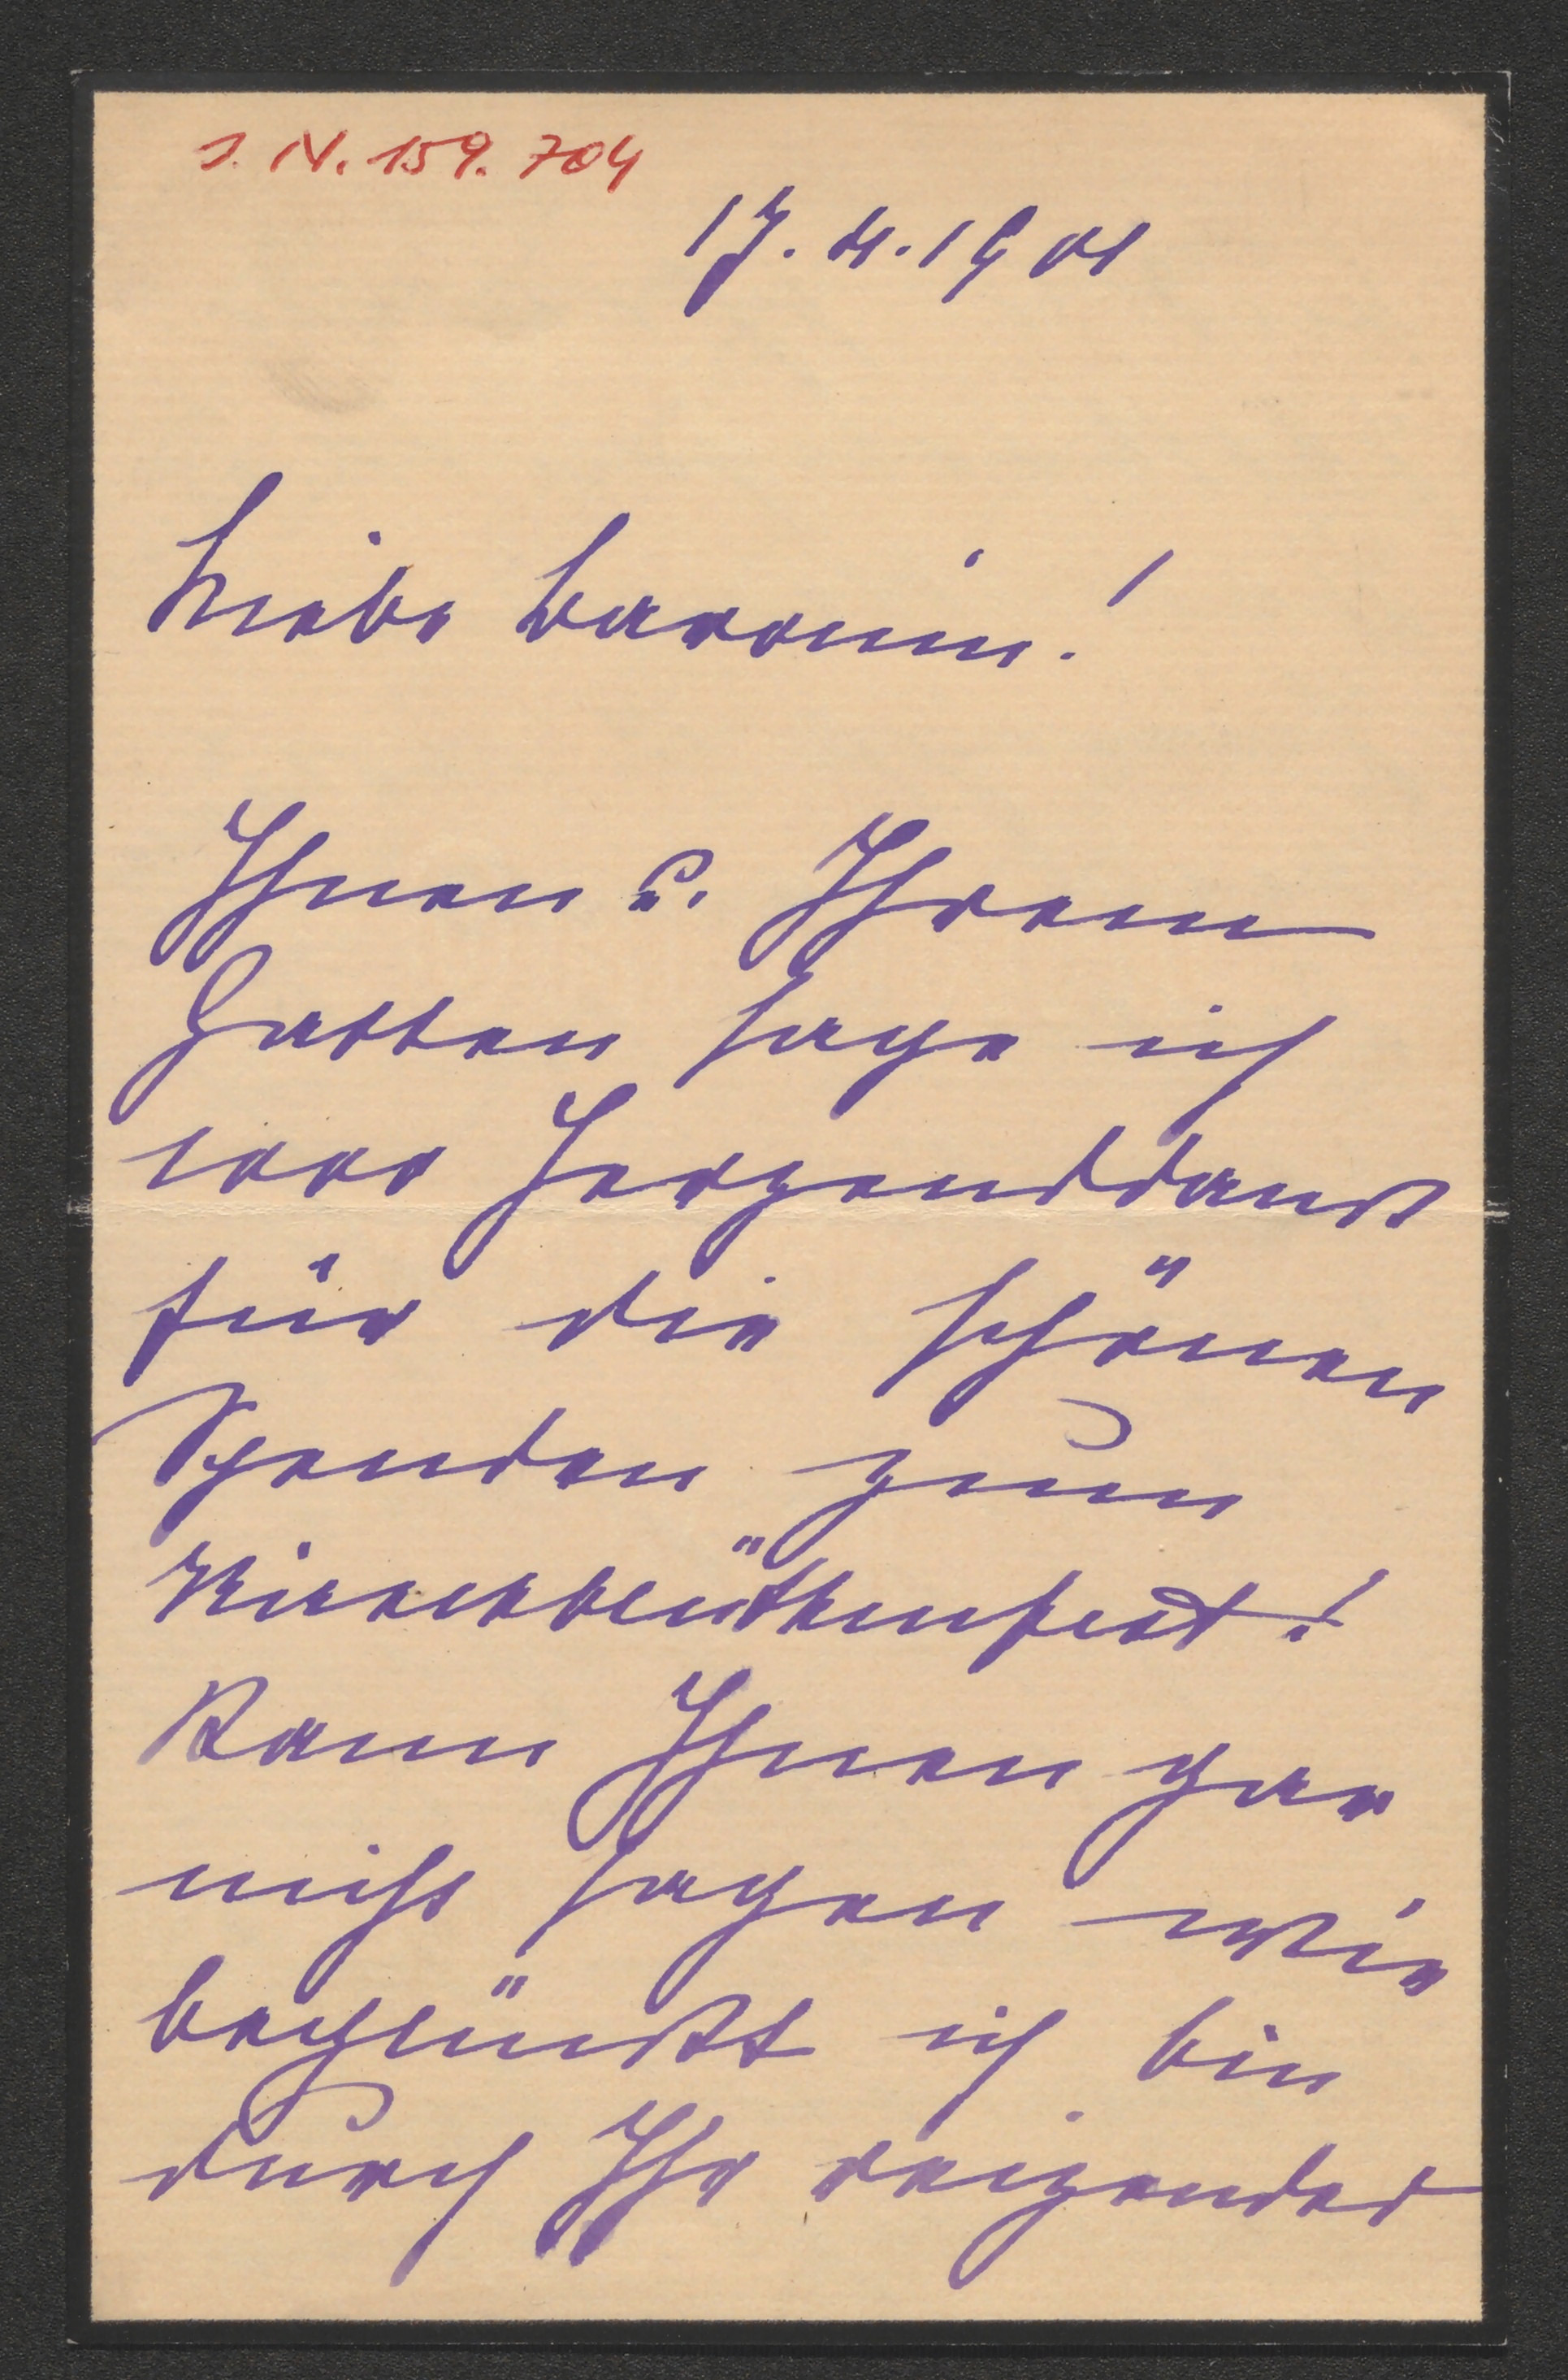 J. N. 159.704
17. 4. 1901
Liebe Baronin!
Ihnen u. Ihrem
Gatten sage ich
1000 Herzensdank
für die schönen
Spenden zum
Kirschblüthenfest!
Kann Ihnen gar
nicht sagen wie
beglückt ich bin
durch Ihr reizendes